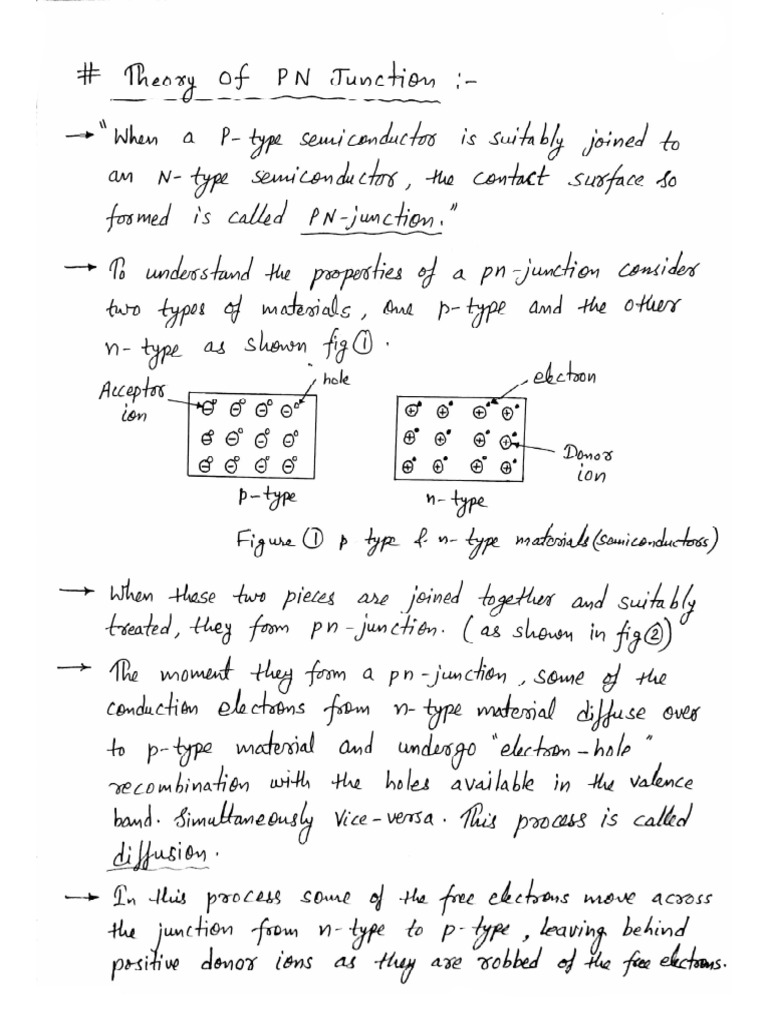 # Theory Of PN Junction :-
→ "When a P-type semiconductor is suitably joined to
an N-type semiconductor, the contact surface so
formed is called PN-junction."
→ To understand the properties of a pn-junction consider
two types of materials, one p-type and the other
n-type as shown fig ①.
Acceptor ion
hole
electron
Donor ion
p-type
n-type
Figure ① p type & n-type materials (semiconductors)
→ When these two pieces are joined together and suitably
treated, they form pn-junction. (as shown in fig ②)
→ The moment they form a pn-junction, some of the
conduction electrons from n-type material diffuse over
to p-type material and undergo "electron-hole"
recombination with the holes available in the valence
band. Simultaneously vice-versa. This process is called
diffusion.
→ In this process some of the free electrons move across
the junction from n-type to p-type, leaving behind
positive donor ions as they are robbed of the free electrons.